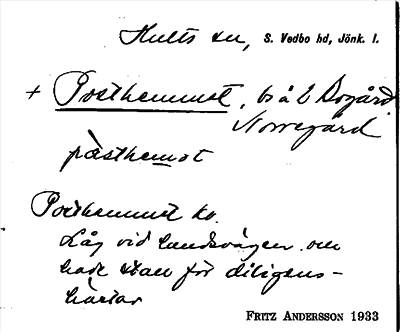 Hults sn, S. Vedbo hd, Jönk. l.
+ Posthemmet, bs å 2 Bogård
Norregård
påsthemət
Posthemmet ko.
Låg vid landsvägen och
hade stall för diligens-
hästar
FRITZ ANDERSSON 1933